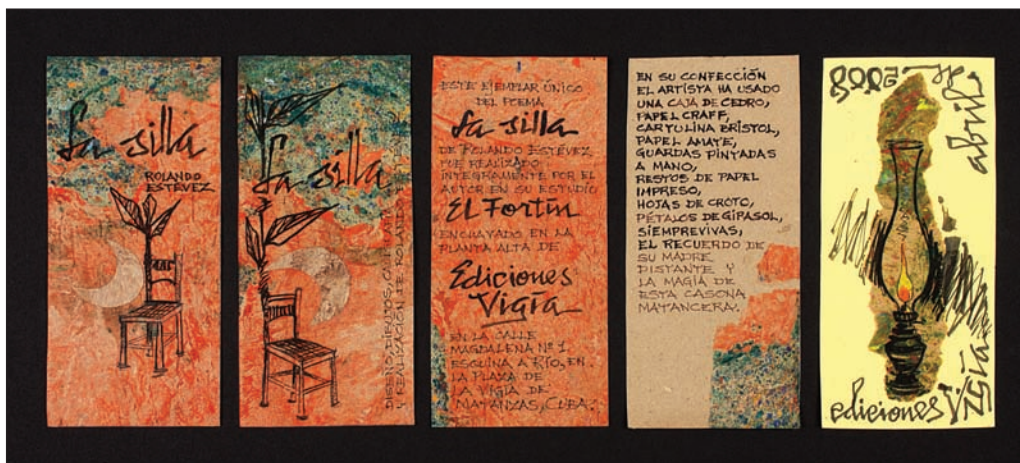 La silla
ROLANDO
ESTÉVEZ
La silla
DISEÑO, DIBUJOS,
Y REALIZACIÓN DE ROLANDO ESTÉVEZ
ESTE EJEMPLAR ÚNICO
DEL POEMA
La silla
DE ROLANDO ESTÉVEZ
FUE REALIZADO
ÍNTEGRAMENTE POR EL
AUTOR EN SU ESTUDIO
EL Fortín
ENCLAVADO EN LA
PLANTA ALTA DE
Ediciones
Vigía
EN LA CALLE
MAGDALENA Nº 1
ESQUINA A RÍO, EN
LA PLAZA DE
LA VIGÍA DE
MATANZAS, CUBA.
EN SU CONFECCIÓN
EL ARTISTA HA USADO
UNA CAJA DE CEDRO,
PAPEL CRAFF,
CARTULINA BRISTOL,
PAPEL AMATE,
GUARDAS PINTADAS
A MANO,
RESTOS DE PAPEL
IMPRESO,
HOJAS DE CROTO,
PÉTALOS DE GIRASOL,
SIEMPREVIVAS,
EL RECUERDO DE
SU MADRE
DISTANTE Y
LA MAGIA DE
ESTA CASONA
MATANCERA.
abril de 2008
ediciones Vigía